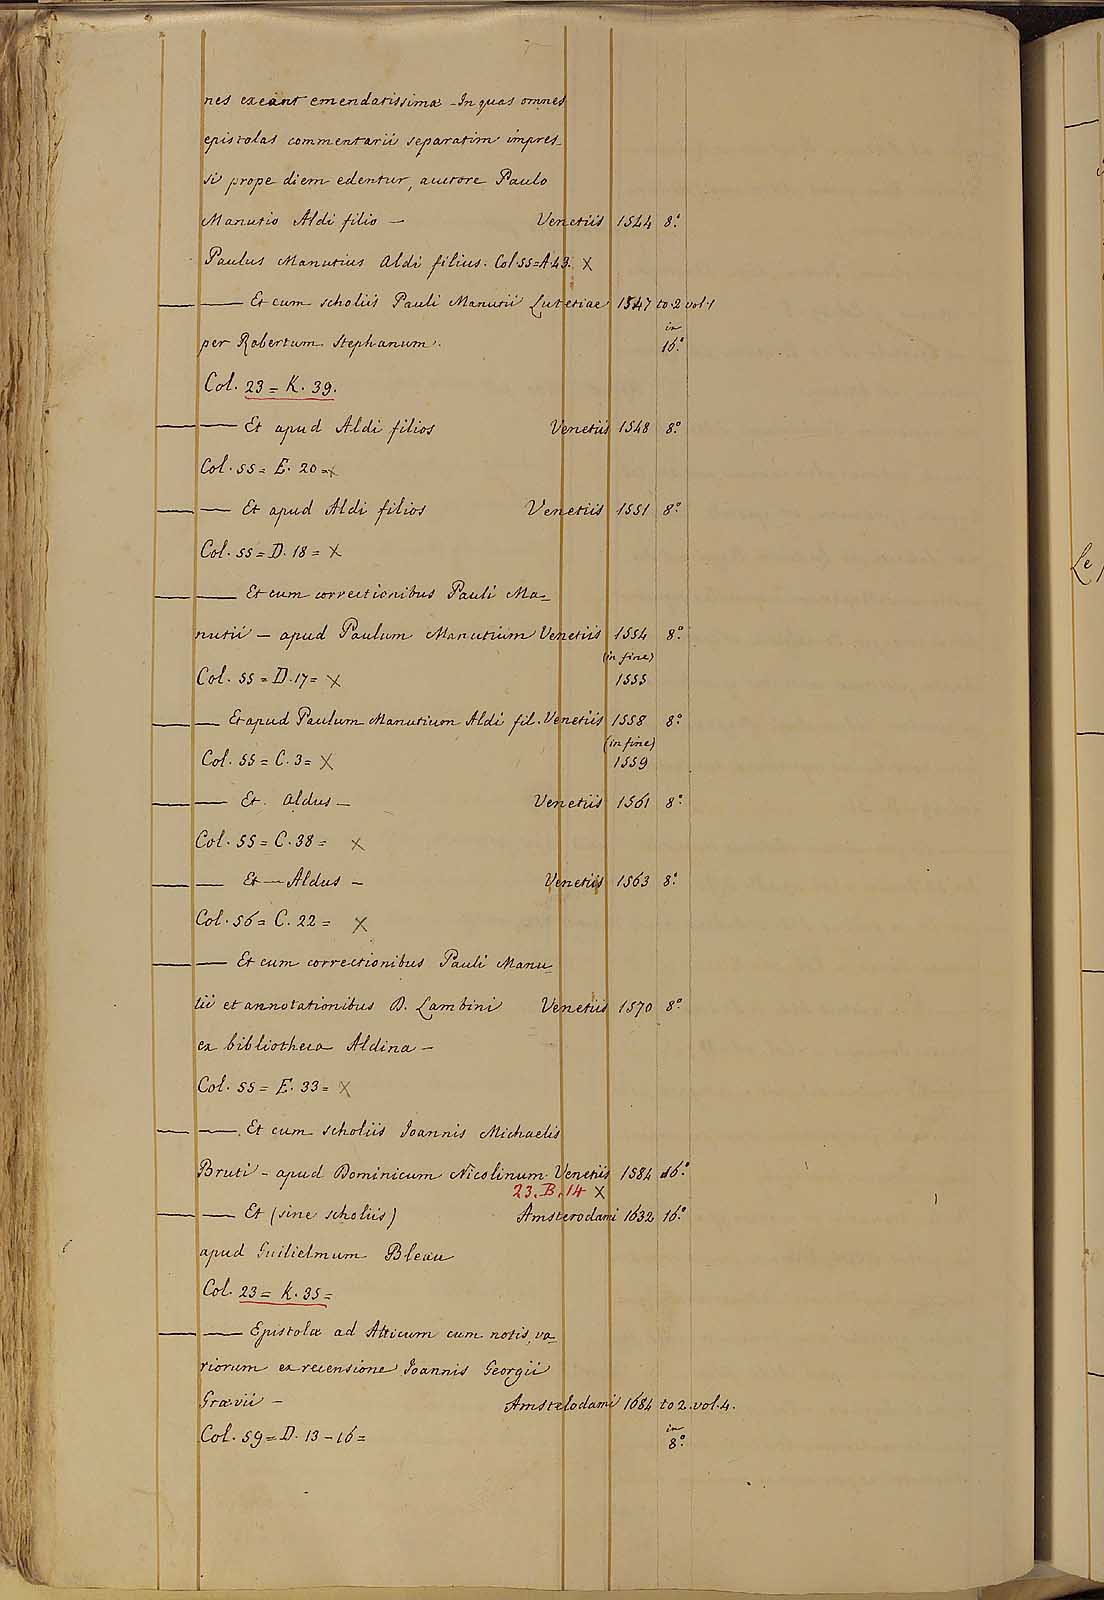 nes exeant emendatissimæ - In quas omnes
epistolas commentarii separatim impres-
si prope diem edentur, auctore Paulo
Manutio Aldi filio — Venetiis 1544 8.°
Paulus Manutius Aldi filius. Col 55 = A. 43. X
—— —— Et cum scholiis Pauli Manutii Lutetiae 1547 to. 2 vol. 1
in
per Robertum Stephanum. 16.°
Col. 23 = K. 39.
—— —— Et apud Aldi filios Venetiis 1548 8.°
Col. 55 = E. 20 = X
—— —— Et apud Aldi filios Venetiis 1551 8.°
Col. 55 = D. 18 = X
—— —— Et cum correctionibus Pauli Ma-
nutii — apud Paulum Manutium Venetiis 1554 8.°
(in fine)
Col. 55 = D. 17 = X 1555
—— —— Et apud Paulum Manutium Aldi fil. Venetiis 1558 8.°
(in fine)
Col. 55 = C. 3 = X 1559
—— —— Et Aldus — Venetiis 1561 8.°
Col. 55 = C. 38 = X
—— —— Et — Aldus — Venetiis 1563 8.°
Col. 56 = C. 22 = X
—— —— Et cum correctionibus Pauli Manu
tii et annotationibus D. Lambini Venetiis 1570 8.°
ex bibliotheca Aldina —
Col. 55 = E. 33 = X
—— —— Et cum scholiis Joannis Michaelis
Bruti — apud Dominicum Nicolinum Venetiis 1584 16.°
23. B. 14 X
—— —— Et (sine scholiis) Amsterodami 1632 16.°
apud Guilielmum Bleau
Col. 23 = K. 35 =
—— —— Epistolæ ad Atticum cum notis va-
riorum ex recensione Joannis Georgii
Grævii — Amstelodami 1684 to 2. vol. 4.
in
Col. 59 = D. 13 - 16 = 8.°
Le